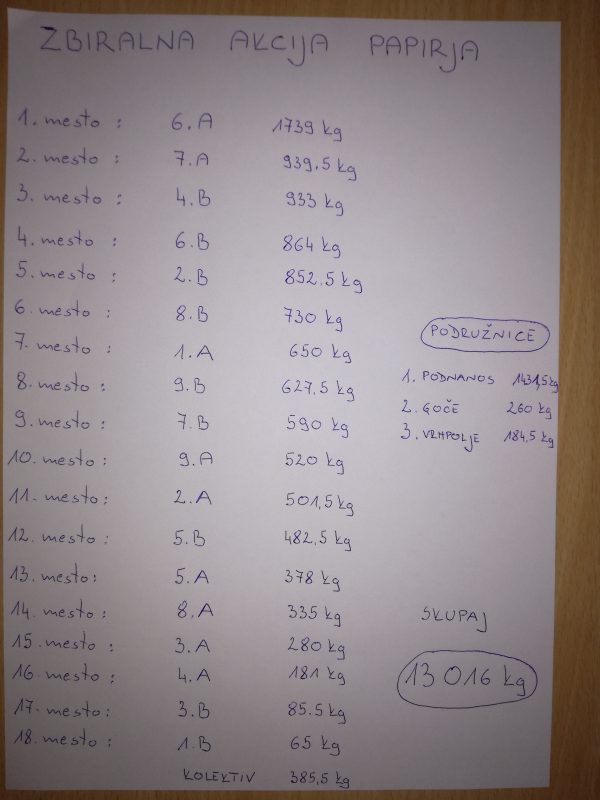 ZBIRALNA AKCIJA PAPIRJA
1. mesto : 6.A 1739 kg
2. mesto : 7.A 939,5 kg
3. mesto : 4.B 933 kg
4. mesto : 6.B 864 kg
5. mesto : 2.B 852.5 kg
6. mesto : 8.B 730 kg
7. mesto : 1.A 650 kg
8. mesto : 9.B 627,5 kg
9. mesto : 7.B 590 kg
10. mesto : 9.A 520 kg
11. mesto : 2.A 501,5 kg
12. mesto : 5.B 482,5 kg
13. mesto: 5.A 378 kg
14. mesto : 8.A 335 kg
15. mesto : 3.A 280 kg
16. mesto : 4.A 181 kg
17. mesto: 3.B 85.5 kg
18. mesto : 1.B 65 kg
KOLEKTIV 385,5 kg
PODRUŽNICE
1. PODNANOS 1431,5 kg
2. GOČE 260 kg
3. VRHPOLJE 184,5 kg
SKUPAJ
13 016 kg